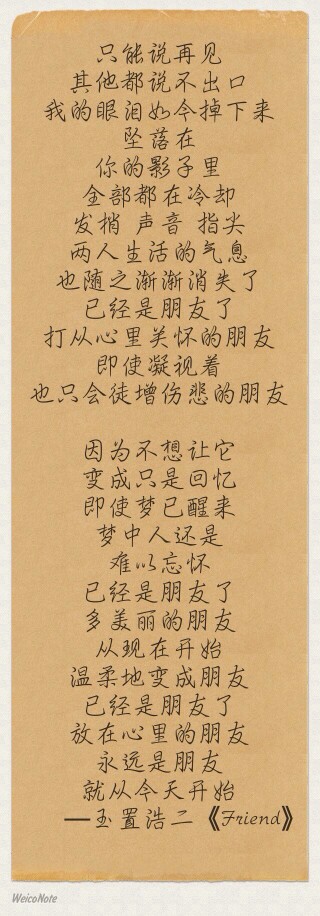 只能说再见
其他都说不出口
我的眼泪如今掉下来
坠落在
你的影子里
全部都在冷却
发梢 声音 指尖
两人生活的气息
也随之渐渐消失了
已经是朋友了
打从心里关怀的朋友
即使凝视着
也只会徒增伤悲的朋友
因为不想让它
变成只是回忆
即使梦已醒来
梦中人还是
难以忘怀
已经是朋友了
多美丽的朋友
从现在开始
温柔地变成朋友
已经是朋友了
放在心里的朋友
永远是朋友
就从今天开始
—玉置浩二《Friend》
WeicoNote